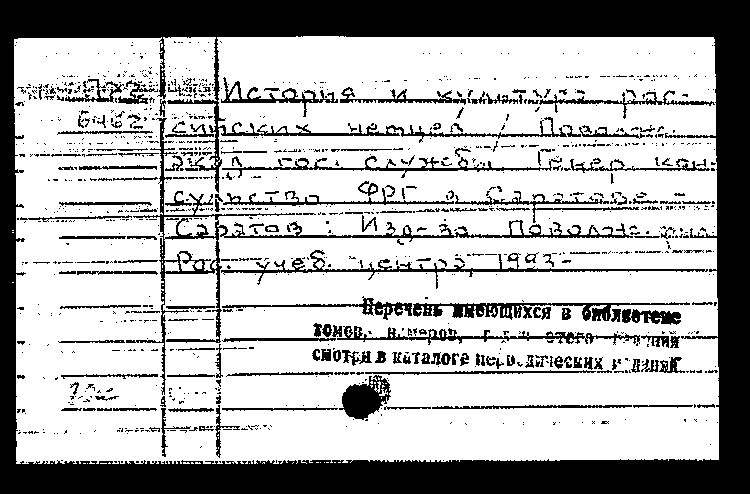 П62 История и культура рос-
6462 сийских немцев / Поволж.
акад гос. службы, Генер. кон-
сульство ФРГ в Саратове -
Саратов : Изд-во Поволж. фил.
Рос. учеб. центра, 1993-
Перечень имеющихся в библиотеке
томов, номеров, этого издания
смотри в каталоге периодических изданий